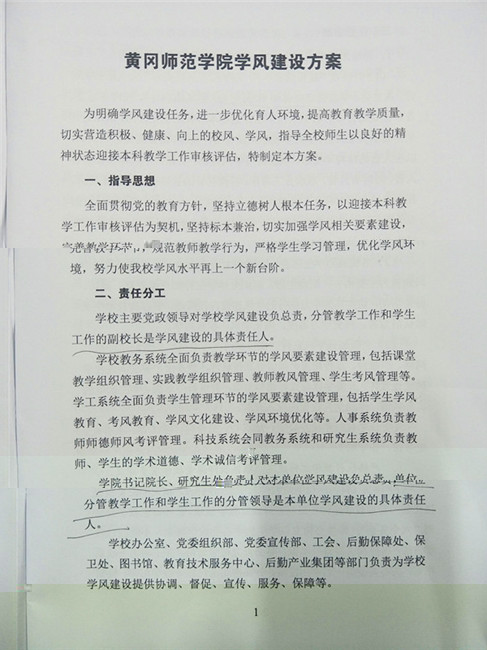 黄冈师范学院学风建设方案
为明确学风建设任务，进一步优化育人环境，提高教育教学质量，
切实营造积极、健康、向上的校风、学风，指导全校师生以良好的精
神状态迎接本科教学工作审核评估，特制定本方案。
一、指导思想
全面贯彻党的教育方针，坚持立德树人根本任务，以迎接本科教
学工作审核评估为契机，坚持标本兼治，切实加强学风相关要素建设，
完善教学环节，规范教师教学行为，严格学生学习管理，优化学风环
境，努力使我校学风水平再上一个新台阶。
二、责任分工
学校主要党政领导对学校学风建设负总责，分管教学工作和学生
工作的副校长是学风建设的具体责任人。
学校教务系统全面负责教学环节的学风要素建设管理，包括课堂
教学组织管理、实践教学组织管理、教师教风管理、学生考风管理等。
学工系统全面负责学生管理环节的学风要素建设管理，包括学生学风
教育、考风教育、学风文化建设、学风环境优化等。人事系统负责教
师师德师风考评管理。科技系统会同教务系统和研究生系统负责教
师、学生的学术道德、学术诚信考评管理。
学院书记院长、研究生处负责人对本单位学风建设负总责，单位
分管教学工作和学生工作的分管领导是本单位学风建设的具体责任
人。
学校办公室、党委组织部、党委宣传部、工会、后勤保障处、保
卫处、图书馆、教育技术服务中心、后勤产业集团等部门负责为学校
学风建设提供协调、督促、宣传、服务、保障等。
1